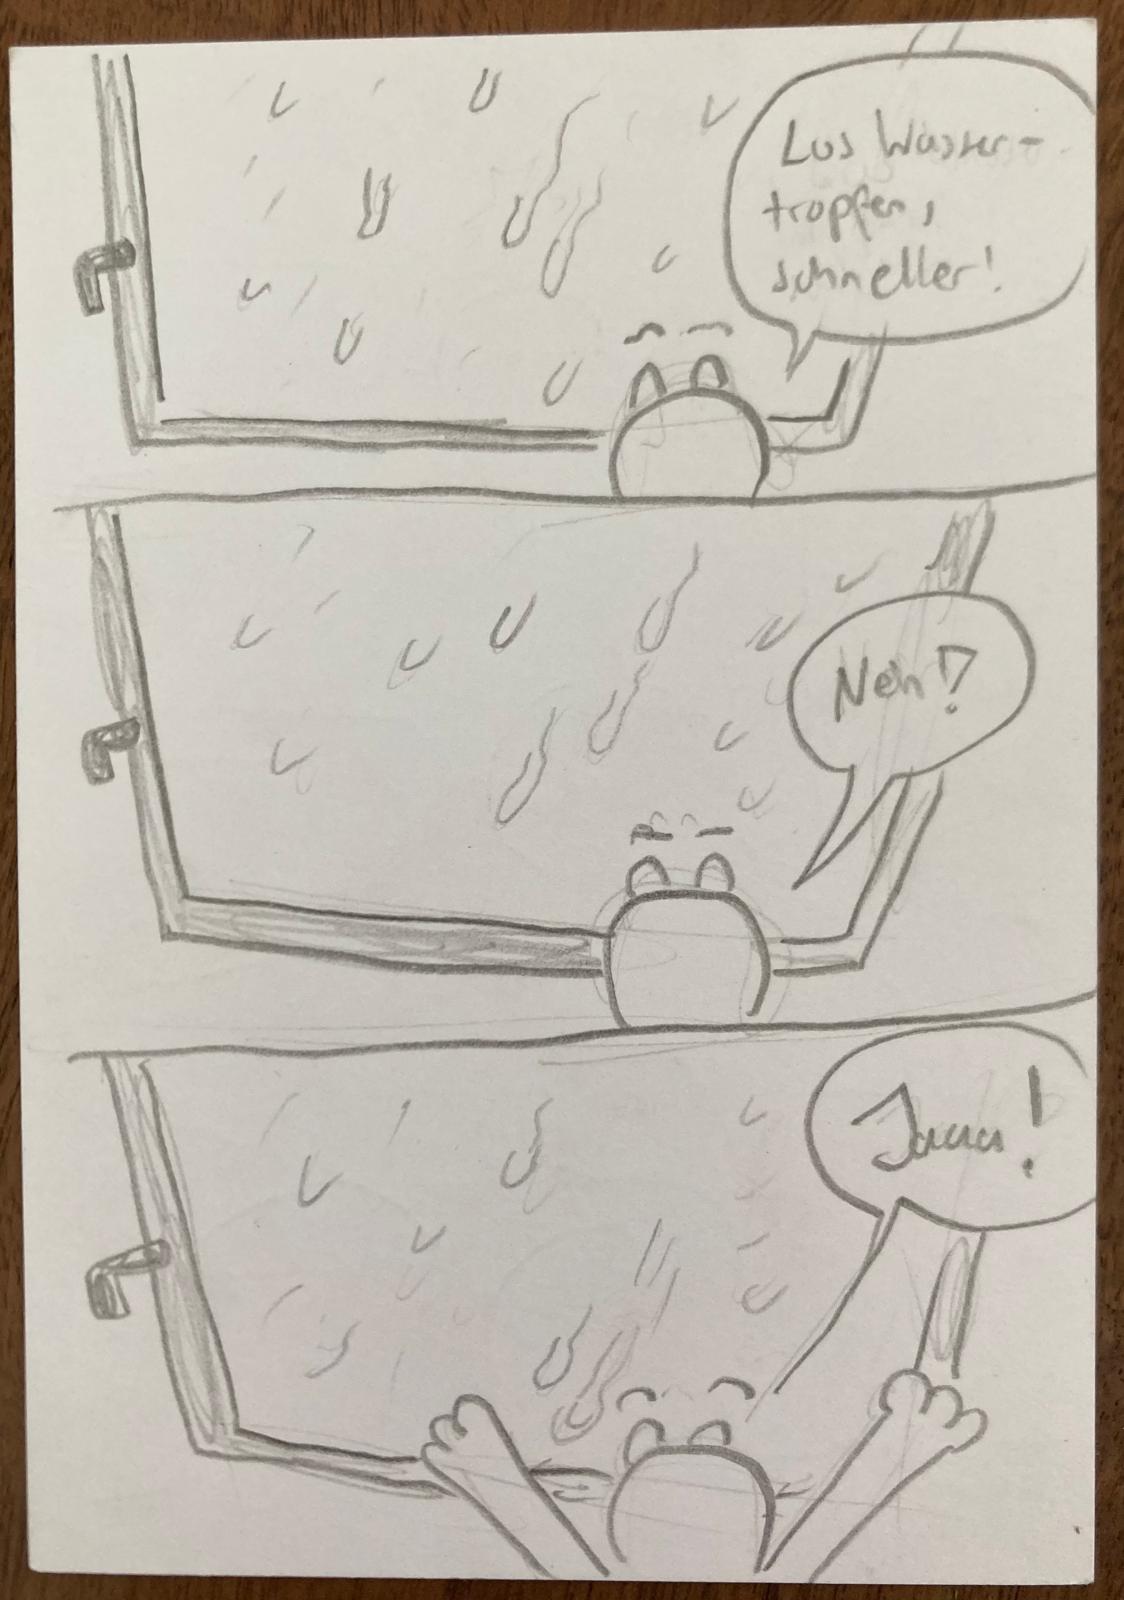 Los Wasser-
tropfen,
schneller!
Neh!?
Jaaa!